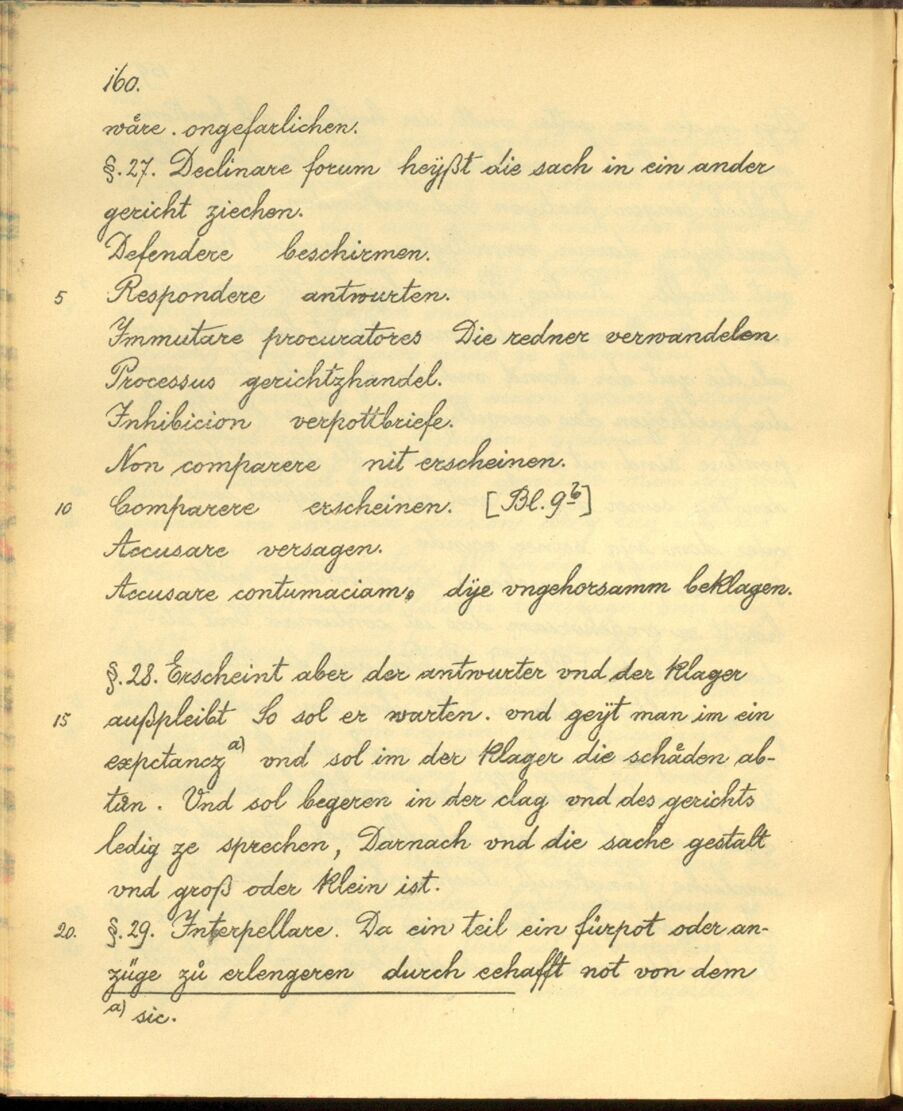 160.
wåre. ongefarlichen.
§.27. Declinare forum heÿßt die sach in ein ander
gericht ziechen.
Defendere beschirmen.
5 Respondere antwurten.
Immutare procuratores Die redner verwandelen
Processus gerichtzhandel.
Inhibicion verpottbriefe.
Non comparere nit erscheinen.
10 Comparere erscheinen. [Bl. 9b]
Accusare versagen.
Accusare contumaciam. dÿe vngehorsamm beklagen.
§.28. Erscheint aber der antwurter vnd der klager
15 außpleibt So sol er warten. vnd geÿt man im ein
expctancz a) vnd sol im der klager die schåden ab-
tůn. Vnd sol begeren in der clag vnd des gerichts
ledig ze sprechen, Darnach vnd die sache gestalt
vnd groß oder klein ist.
20. §.29. Interpellare. Da ein teil ein fürpot oder an-
züge zů erlengeren durch eehafft not von dem
a) sic.